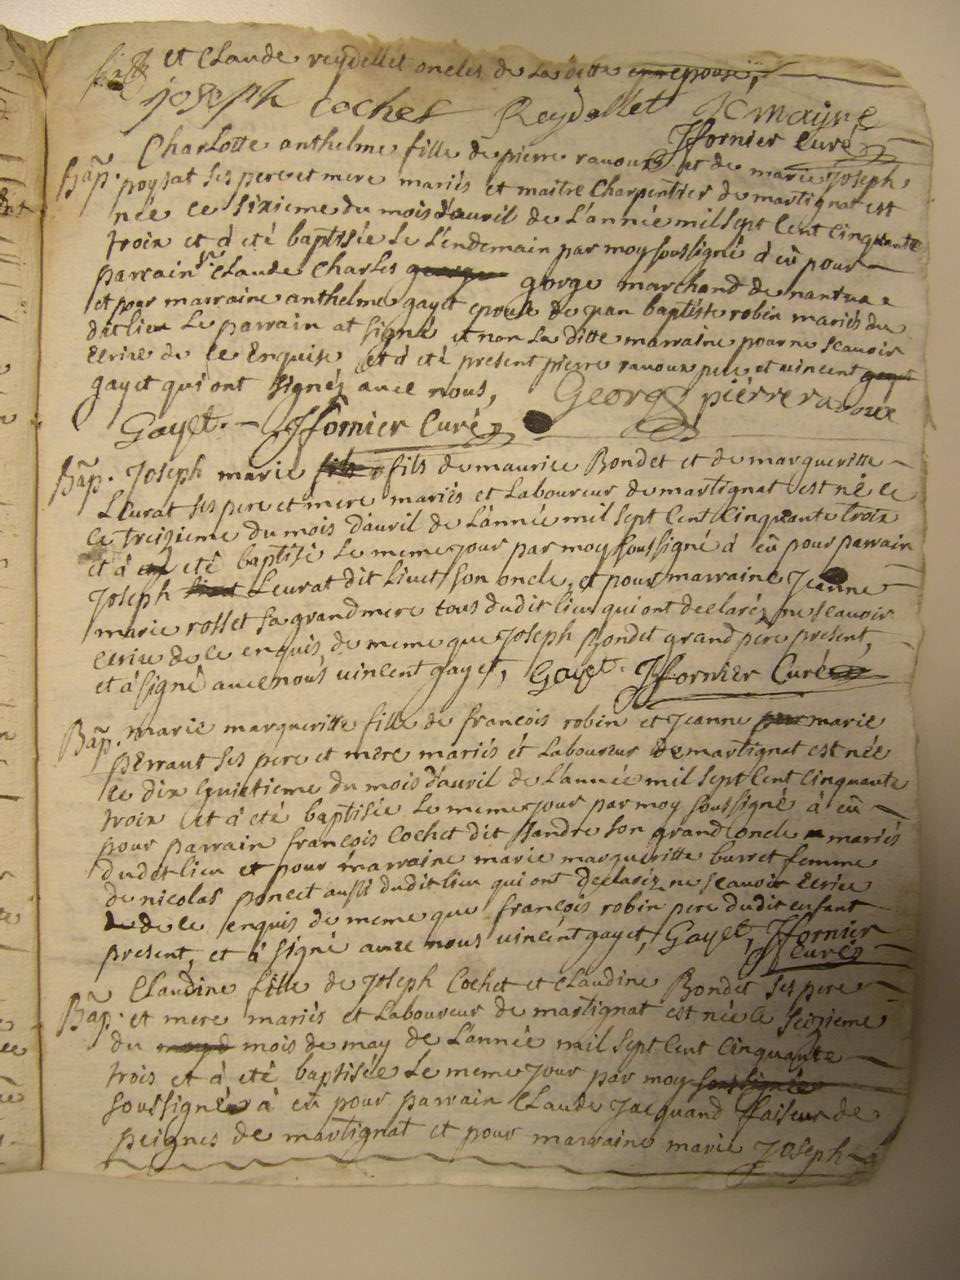 et Claude reydellet oncles de la ditte epouse,
joseph cochet Reydellet JC mayre
Jfornier Curé
Bap. Charlotte anthelme fille de pierre ravoux et de marie Joseph
poysat ses pere et mere mariés et maitre Charpentier de martignat est
née le sixieme du mois d'avril de l'année mil sept Cent Cinquante
trois et à été baptisée Le Lendemain par moy soussigné à eü pour
parrain sr Claude Charles george gorge marchand de nantua
et pour marraine anthelme gayet epouse de jean baptiste robin mariés du
dit lieu Le parrain at signé et non La ditte marraine pour ne scavoir
ecrire de ce Enquise et à été present pierre ravoux pere et vincent gayet
gayet qui ont signéz avec nous, Georg pièrre ravoux
Gayet. Jfornier Curé
Bap. Joseph marie fils fils de maurice Bondet et de margueritte
Leurat ses pere et mere mariés et Laboureur de martignat est né le
Ce treizieme du mois d'avril de L'année mil sept Cent Cinquante trois
et à été baptisé Le meme jour par moy soussigné à eü pour parrain
Joseph Leurat dit Livet son oncle, et pour marraine Jeanne
marie rosset sa grand mere tous dudit lieu qui ont declaréz ne scavoir
ecrire de ce enquis, de meme que Joseph Bondet grand père present,
et à signé avec nous vincent gayet, Gayet. Jfornier Curé
Bap. marie margueritte fille de francois robin et Jeanne marie
perraut ses pere et mere mariés et Laboureur de martignat est née
le dix huictieme du mois d'avril de L'année mil sept Cent Cinquante
trois et à été baptisée Le meme jour par moy soussigné à eü
pour parrain francois Cochet dit Handre son grand oncle mariés
dudit lieu et pour marraine marie margueritte burret femme
de nicolas poncet aussi dudit lieu qui ont declaréz ne scavoir ecrire
de ce enquis de meme que francois robin pere dudit enfant
present, et à signé avec nous vincent gayet, Gayet, Jfornier
Curé
Bap. Claudine fille de Joseph Cochet et Claudine Bondet ses pere
et mere mariés et Laboureur de martignat est née le seizieme
du mois de may de L'année mil sept Cent Cinquante
trois et à été baptisée Le meme Jour par moy soussignée
soussigné à eü pour parrain Claude Jacquand faiseur de
peignes de martignat et pour marraine marie Joseph